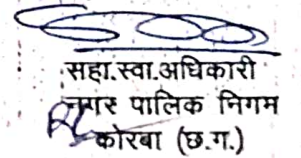 सहा.स्वा.अधिकारी
नगर पालिक निगम
कोरबा (छ.ग.)